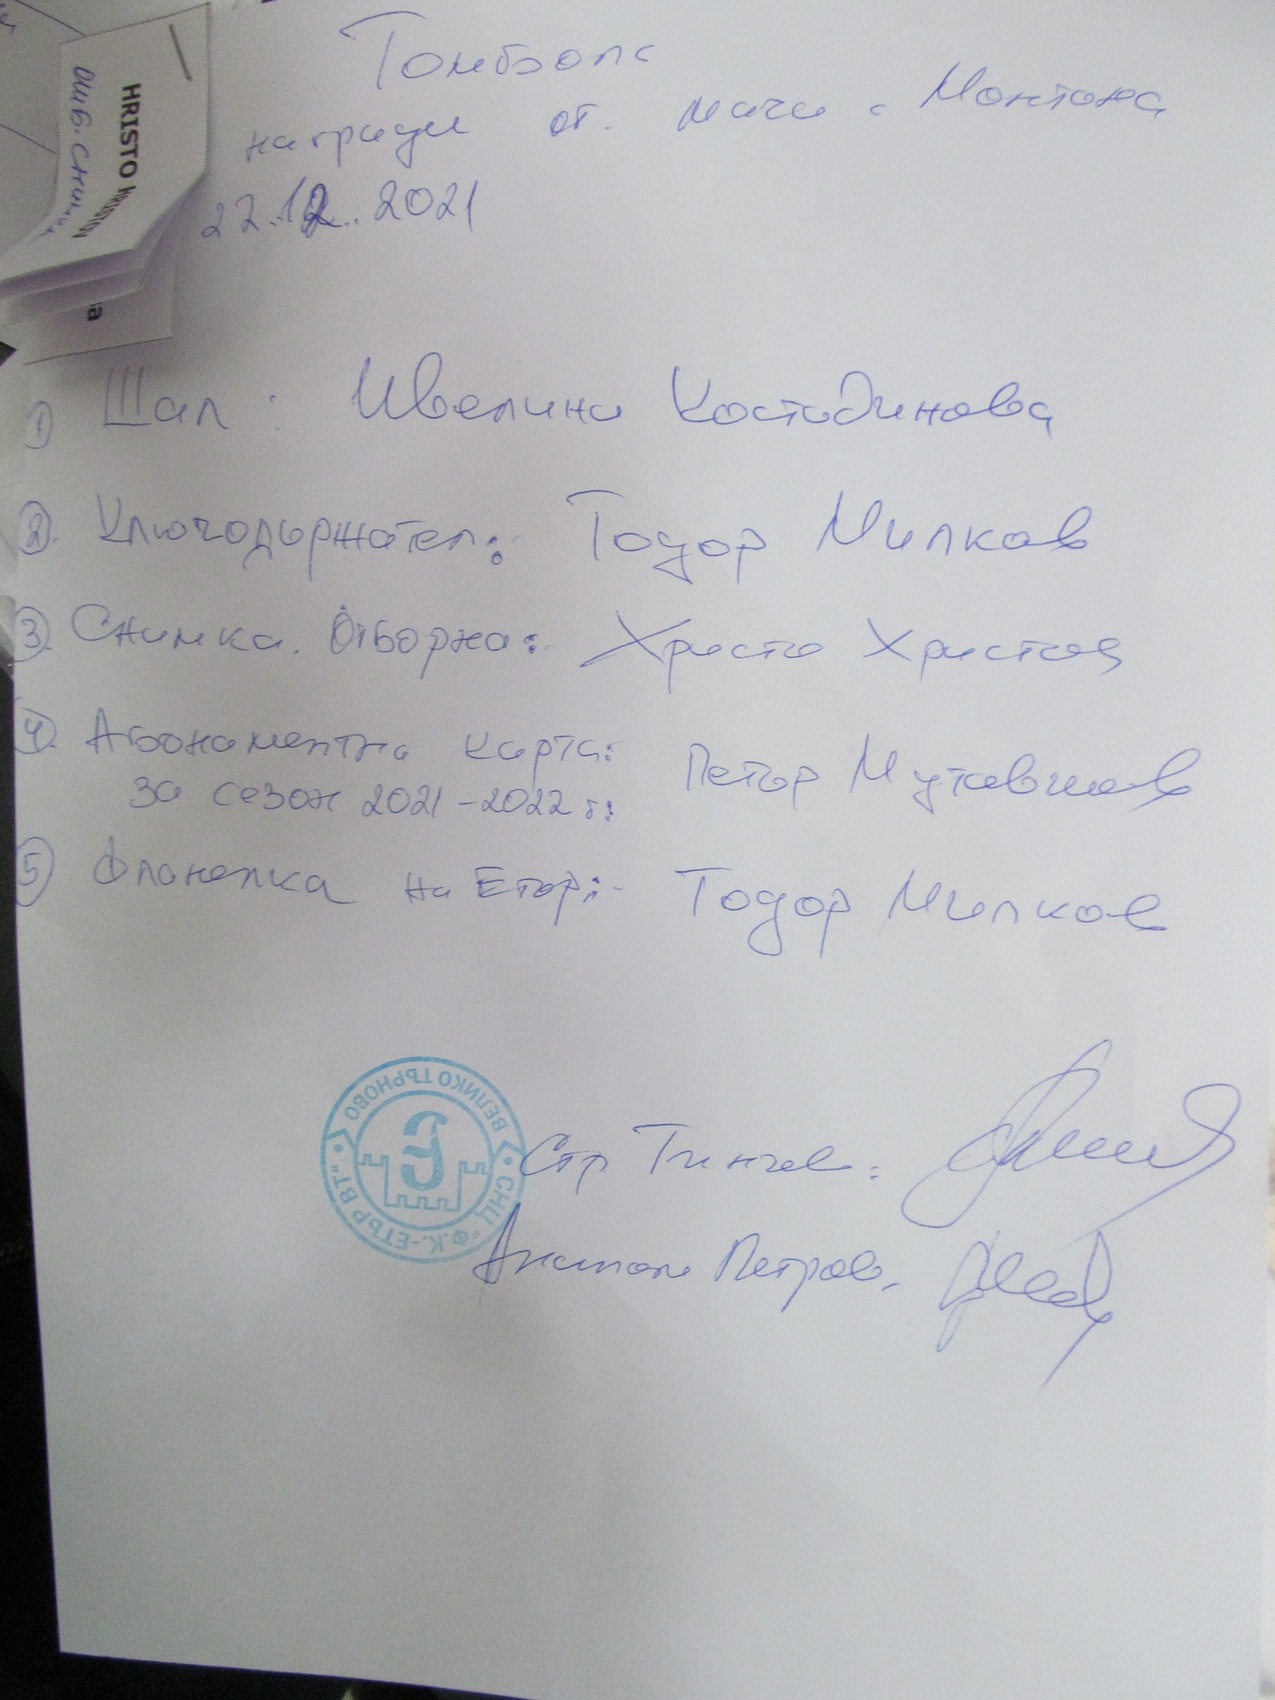 HRISTO HRISTOV
Томбола
награди от мача с Монтана
22.12.2021
① Шал: Ивелина Костадинова
② Ключодържател: Тодор Милков
③ Снимка Отборна: Христо Христов
④ Абонаментна карта: Петър Мутавчиев
за сезон 2021-2022 г:
⑤ Фланелка на Етър: Тодор Милков
СНЦ "Ф.К.-ЕТЪР ВТ" ВЕЛИКО ТЪРНОВО
Стр. Тинчев:
Петров